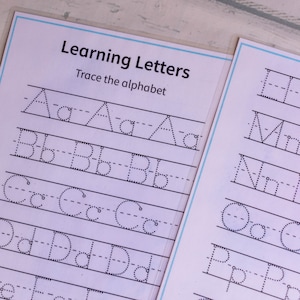 Learning Letters
Trace the alphabet
Aa Aa Aa
Bb Bb Bb
Cc Cc Cc
Dd Dd Dd
Mm
Nn
Oo
Pp P